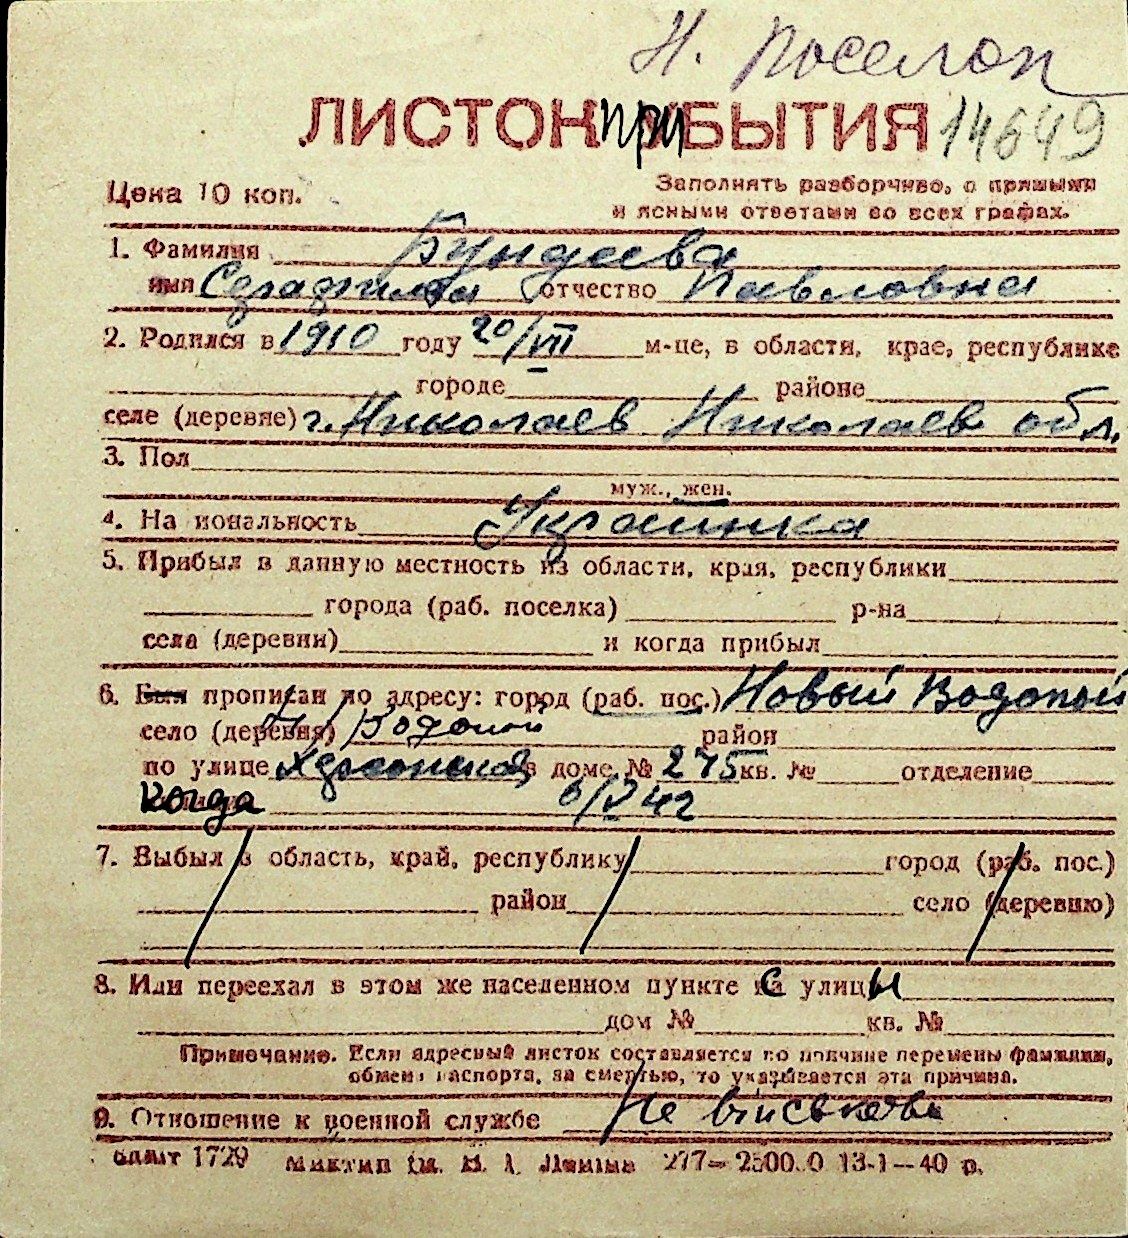 Н. Поселок
ЛИСТОК при БЫТИЯ 14649
Цена 10 коп.
Заполнять разборчиво, с прямыми
и ясными ответами во всех графах.
1. Фамилия Бундева
имя отчество Павловна
2. Родился в 1910 году 20/VII м-це, в области, крае, республике
городе районе
селе (деревне) г. Николаев Николаев обл.
3. Пол
муж., жен.
4. Национальность Украинка
5. Прибыл в данную местность из области, края, республики
города (раб. поселка) р-на
села (деревни) и когда прибыл
6. Был прописан по адресу: город (раб. пос.) Новый Водопой
село (деревня) Н/Водопой район
по улице Херсонская в доме № 275 кв. № отделение
когда 6/V 42
7. Выбыл в область, край, республику город (раб. пос.)
район село (деревню)
8. Или переехал в этом же населенном пункте с улицы
дом № кв. №
Примечание. Если адресный листок составляется по причине перемены фамилии,
обмена паспорта, за смертью, то указывается эта причина.
9. Отношение к военной службе Не військова
1729 им. В. І. Леніна 277—2500.0 13-1—40 р.